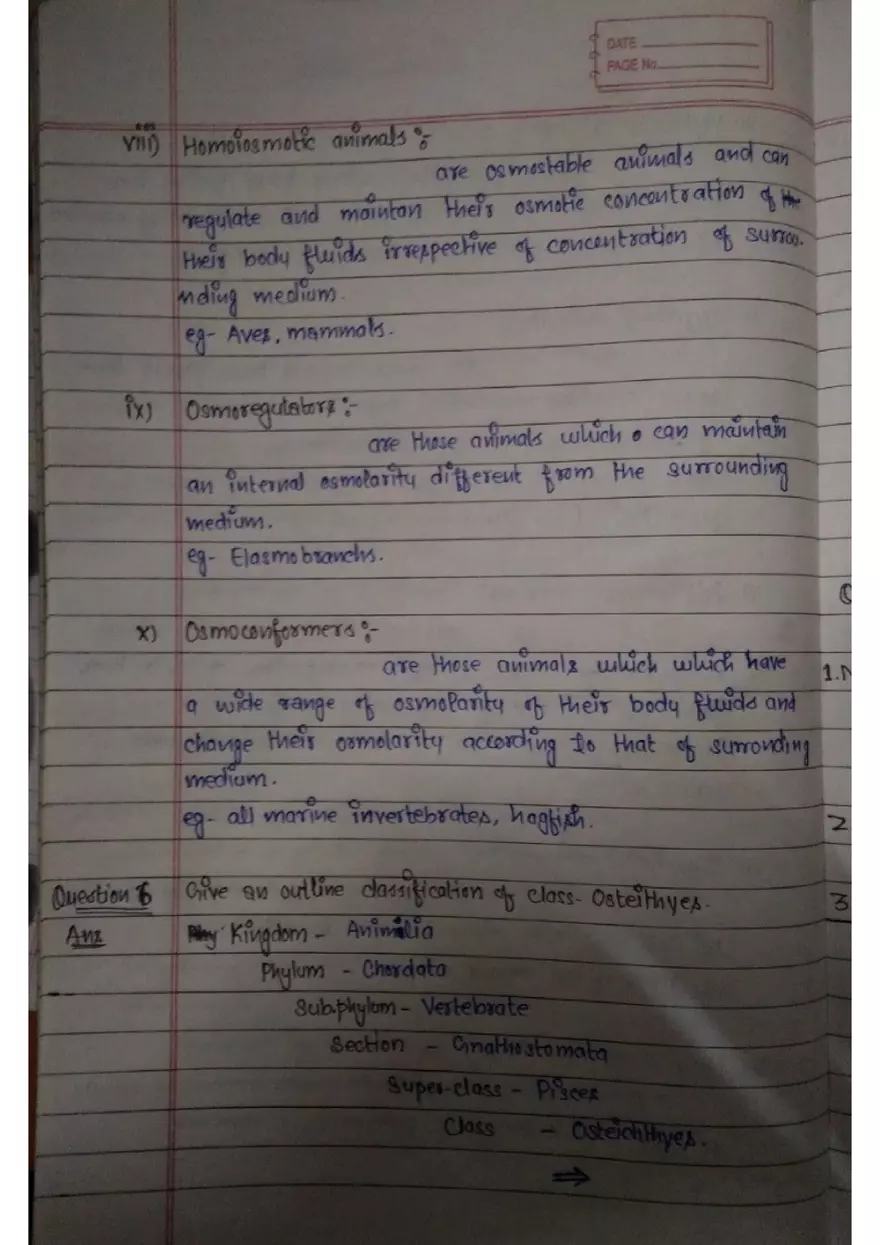 DATE
PAGE No.
viii) Homoiosmotic animals :-
are osmostable animals and can
regulate and maintan their osmotic concentration of the
their body fluids irrespective of concentration of surrou-
nding medium.
eg- Aves, mammals.
ix) Osmoregulators :-
are those animals which can maintain
an internal osmolarity different from the surrounding
medium.
eg- Elasmobranchs.
x) Osmoconformers :-
are those animals which which have
a wide range of osmolarity of their body fluids and
change their osmolarity according to that of surronding
medium.
eg- all marine invertebrates, hagfish.
Question 6 Give an outline classification of class- Osteithyes.
Ans Phy Kingdom - Animalia
Phylum - Chordata
Sub.phylum - Vertebrate
Section - Gnathostomata
Super-class - Pisces
Class - Osteichthyes.
⇒
1.N
2
3